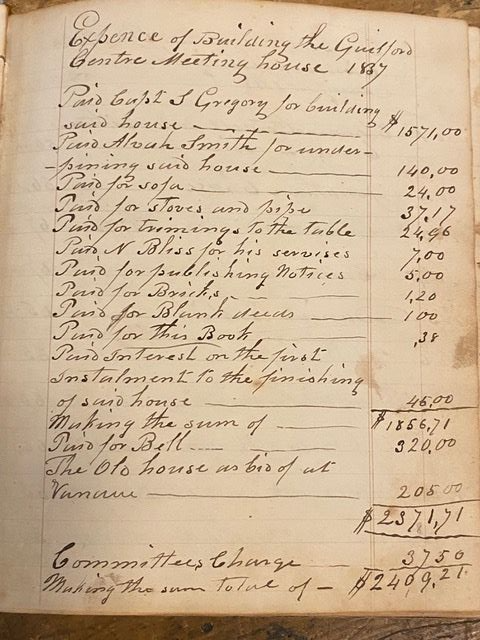 Expence of Building the Guilford
Centre Meeting house 1837
Paid Capt S Gregory for building
said house $1571,00
Paid Alvah Smith for under-
-pining said house 140,00
Paid for sofa 24,00
Paid for stoves and pipe 37,17
Paid for trimings to the table 24,96
Paid N Bliss for his servises 7,00
Paid for publishing Notices 5,00
Paid for Bricks 1,20
Paid for Blank deeds 1 00
Paid for this Book ,38
Paid Interest on the first
Instalment to the finishing
of said house 46,00
Making the sum of $1856,71
Paid for Bell 320,00
The Old house as bid of at
Vandue 205 00
$2371,71
Committees Charge 37 50
Making the sum total of - $2409,21